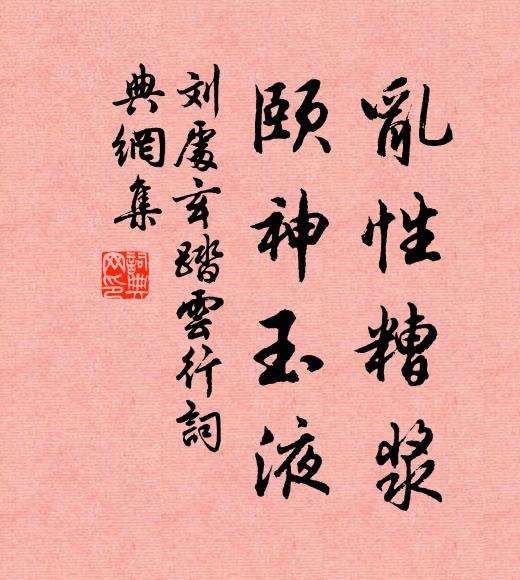 亂性糟漿
頤神玉液
刘處玄踏雲行詞
典網集
詞典網印